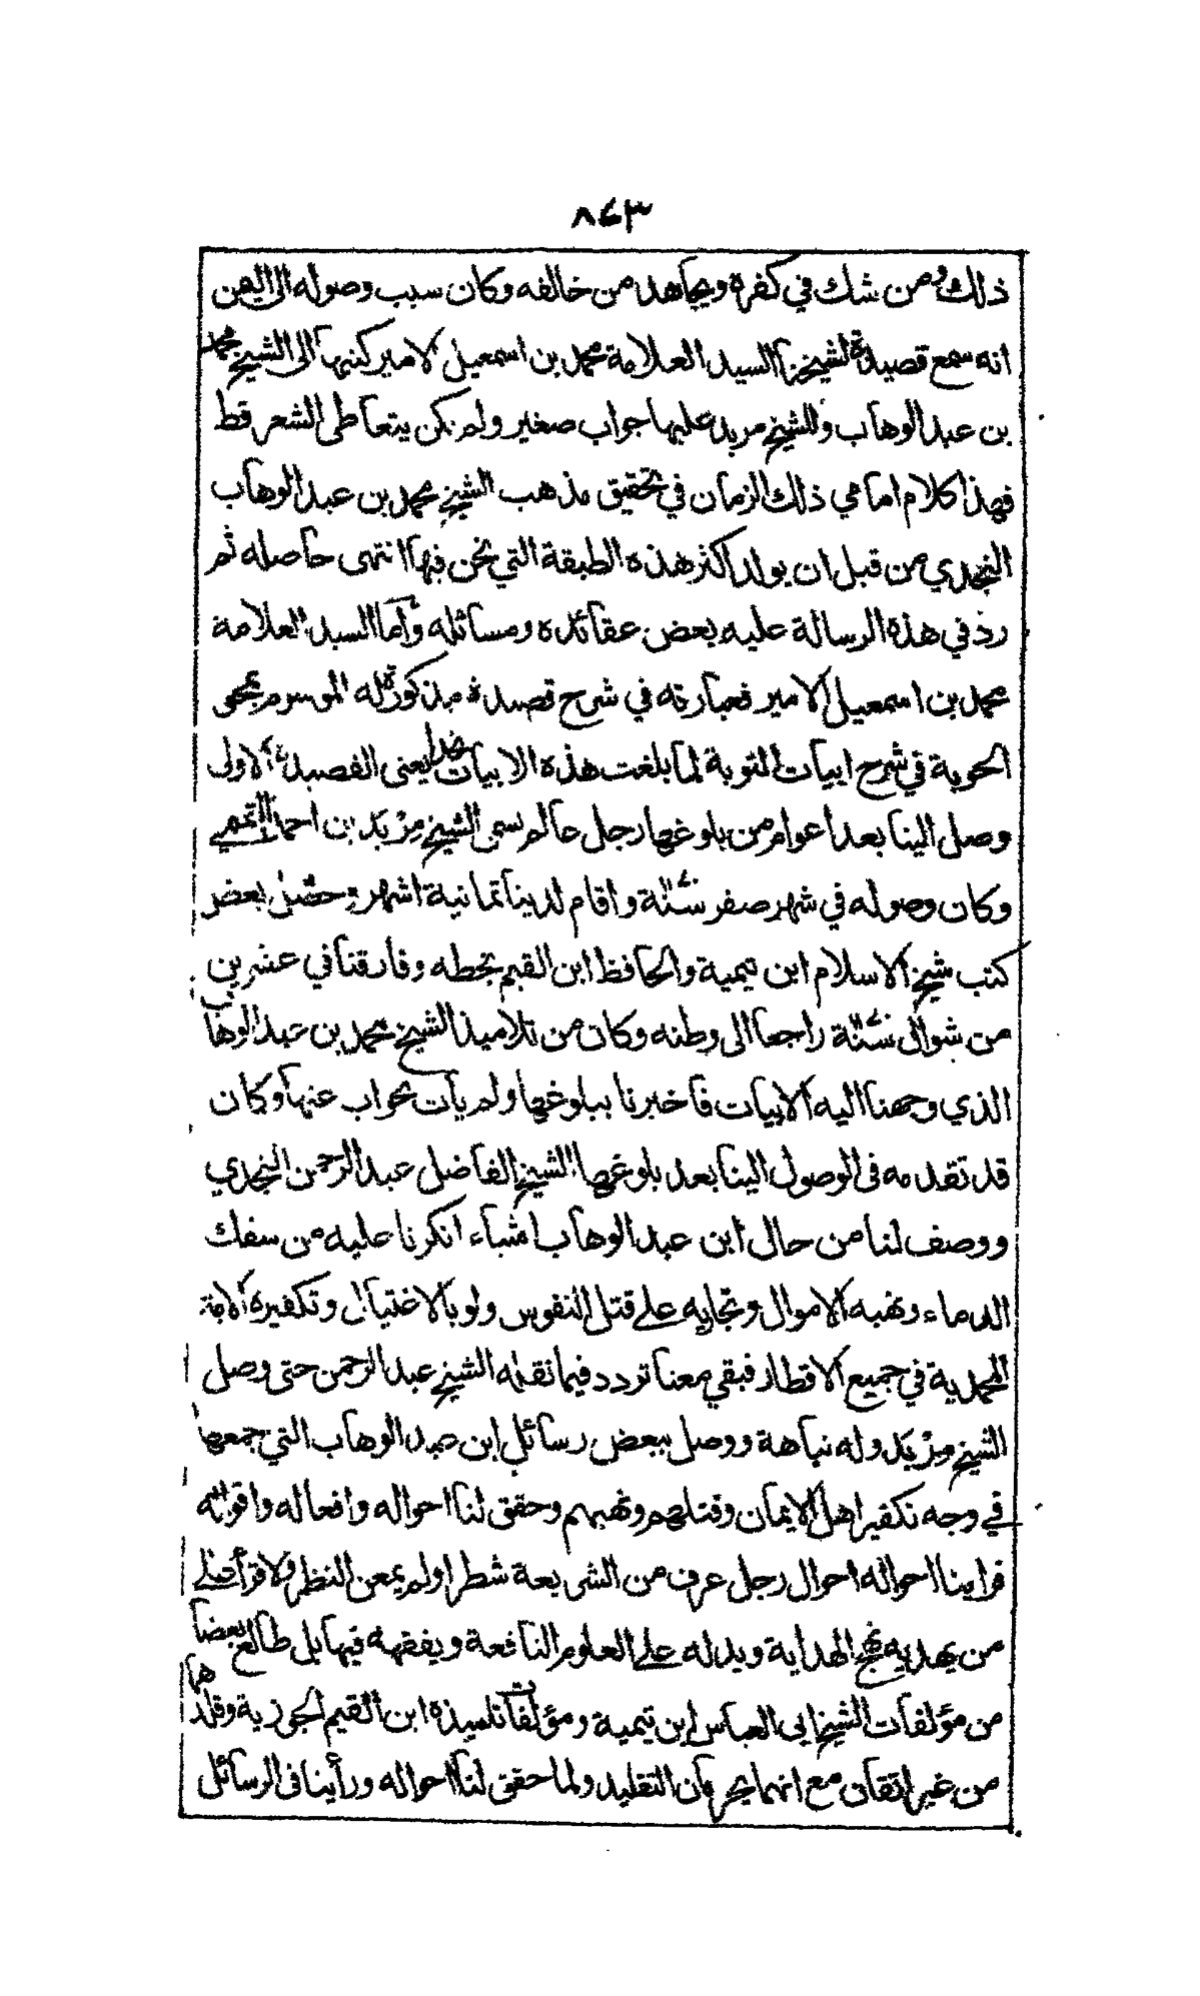 ٨٤٣
ذلك ومن شك في كفره ويجاهد من خالفه وكان سبب وصوله الى اليمن
انه سمع قصيدة لشيخنا السيد العلامة محمد بن اسمعيل الامير كتبها الى الشيخ محمد
بن عبد الوهاب وللشيخ مربد عليها جواب صغير ولم يكن يتعاطى الشعر قط
فهذا كلام امامي ذلك الزمان في تحقيق مذهب الشيخ محمد بن عبد الوهاب
النجدي من قبل ان يولد اكثر هذه الطبقة التي نحن فيها انتهى حاصله ثم
رد في هذه الرسالة عليه بعض عقائده ومسائله وأما السيد العلامة
محمد بن اسمعيل الامير فعبارته في شرح قصيدة مذكورة له الموسوم بمحو
الحوبة في شرح ابيات التوبة لما بلغت هذه الابيات نجدا يعني القصيدة الاولى
وصل الينا بعد اعوام من بلوغها رجل عالم يسمى الشيخ مربد بن احمد التميمي
وكان وصوله في شهر صفر سنة واقام لدينا ثمانية اشهر وحصل بعض
كتب شيخ الاسلام ابن تيمية والحافظ ابن القيم بخطه وفارقنا في عشرين
من شوال سنة راجعا الى وطنه وكان من تلاميذ الشيخ محمد بن عبد الوهاب
الذي وجهنا اليه الابيات فاخبرنا ببلوغها ولم يأت بجواب عنها وكان
قد تقدمه في الوصول الينا بعد بلوغها الشيخ الفاضل عبد الرحمن النجدي
ووصف لنا من حال ابن عبد الوهاب اشياء انكرنا عليه من سفك
الدماء ونهبه الاموال وتجاريه على قتل النفوس ولو بالاغتيال وتكفيره الامة
المحمدية في جميع الاقطار فبقي معنا تردد فيما نقله الشيخ عبد الرحمن حتى وصل
الشيخ مربد وله نباهة ووصل ببعض رسائل ابن عبد الوهاب التي جمعها
في وجه تكفير اهل الايمان وقتلهم ونهبهم وحقق لنا احواله وافعاله واقواله
فراينا احواله احوال رجل عرف من الشريعة شطرا ولم يمعن النظر ولا قرأ على
من يهديه نهج الهداية ويدله على العلوم النافعة ويفقهه فيها بل طالع بعضا
من مؤلفات الشيخ ابي العباس ابن تيمية ومؤلفات تلميذه ابن القيم الجوزية وقلدهما
من غير اتقان مع انهما يحرمان التقليد ولما حقق لنا احواله ورأينا في الرسائل